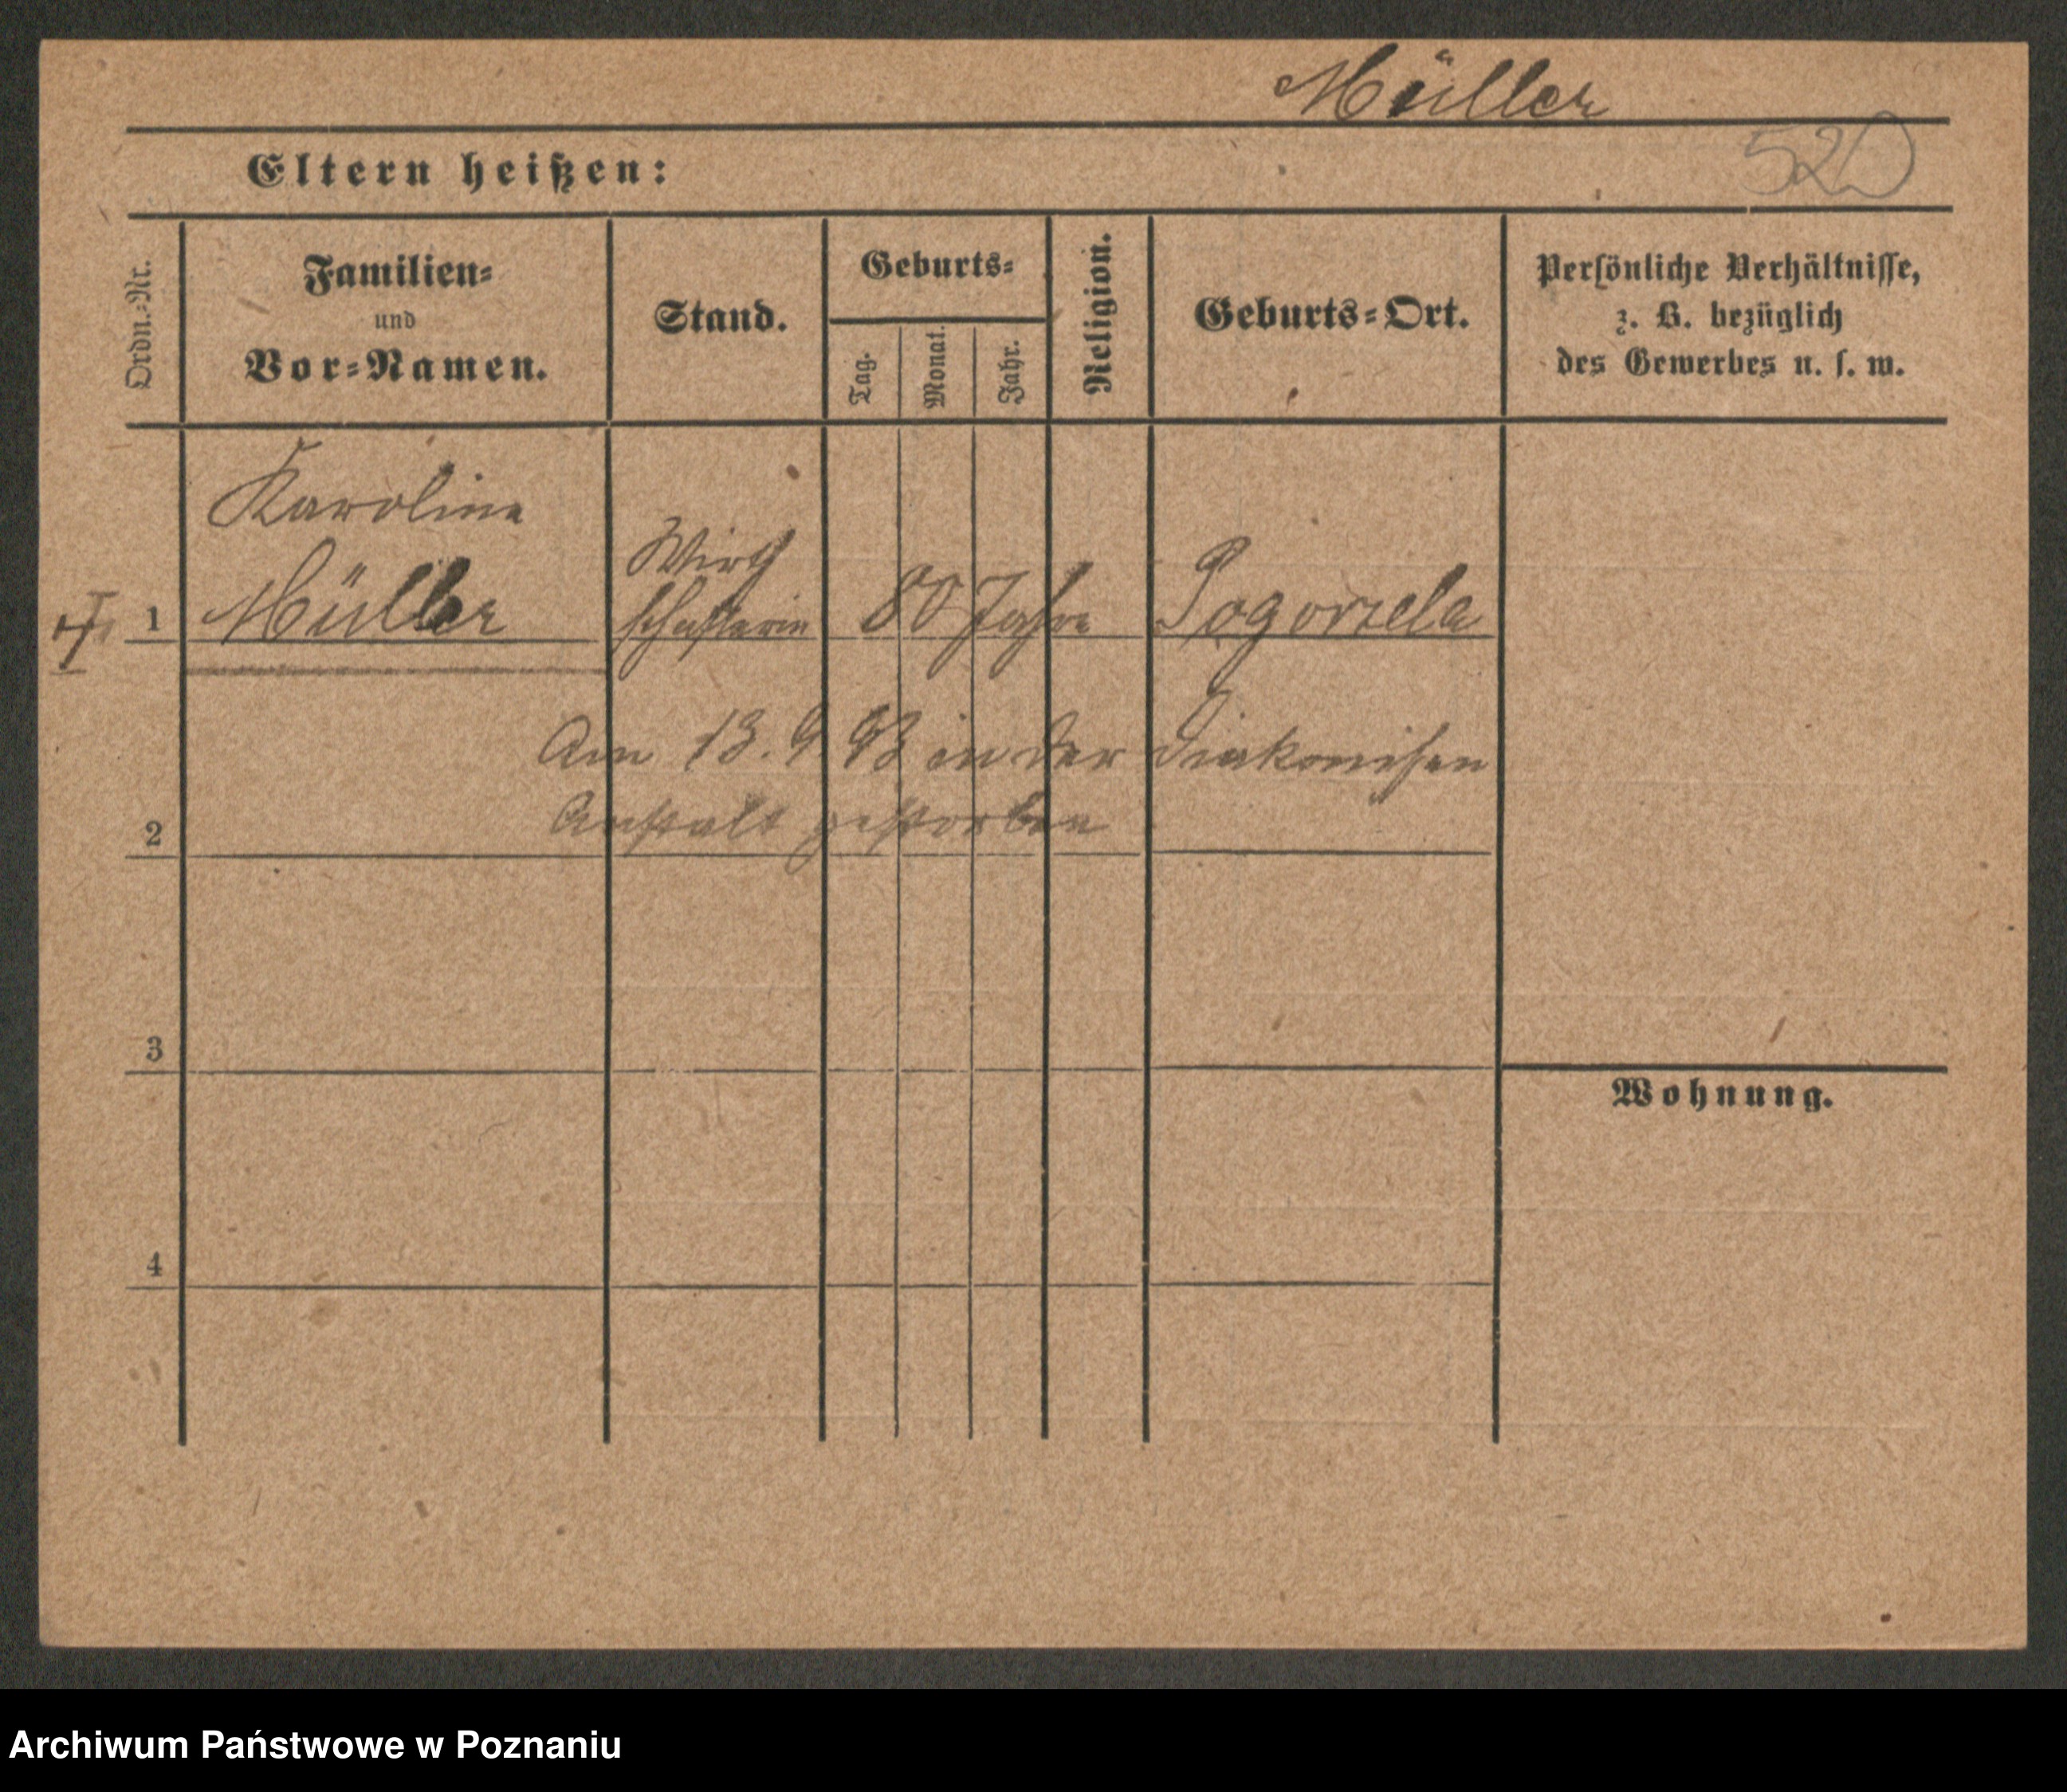 Müller
520
Eltern heißen:
Ordn.-Nr.
Familien-
und
Vor-Namen.
Stand.
Geburts-
Tag.
Monat.
Jahr.
Religion.
Geburts-Ort.
Persönliche Verhältnisse,
z. B. bezüglich
des Gewerbes u. s. w.
Karoline
Müller
Wirth
schafterin
80 Jahre
Pogorzela
1
Am 13. 9 93 in der Diakonisen
Anstalt gestorben
2
3
Wohnung.
4
Archiwum Państwowe w Poznaniu